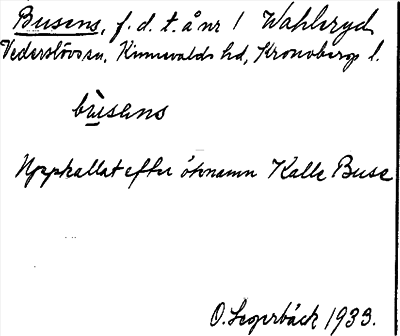 Busens, f.d.t. å nr 1 Wahlsryd,
Vederslövs sn, Kinnevalds hd, Kronobergs l.
busens
Uppkallat efter öknamn Kalle Buse
O. Segerbäck 1933.